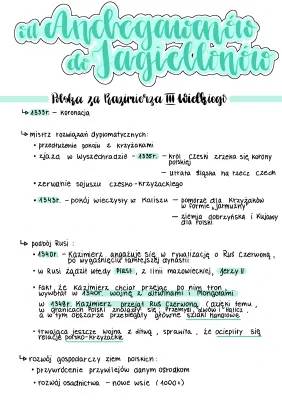 od Andegawenów
do Jagiellonów
Polska za Kazimierza III Wielkiego
↳ 1333r. – koronacja
↳ mistrz rozwiązań dyplomatycznych:
• przedłużenie pokoju z krzyżakami
• zjazd w Wyszechradzie – 1335r. – król czeski zrzeka się korony
polskiej
– utrata śląska na rzecz czech
• zerwanie sojuszu czesko-krzyżackiego
• 1343r. – pokój wieczysty w Kaliszu – pomorze dla Krzyżaków
w formie „jałmużny"
– ziemia dobrzyńska i Kujawy
dla Polski
↳ podbój Rusi :
• 1340r. – Kazimierz angażuje się w rywalizację o Ruś Czerwoną,
po wygaśnięciu tamtejszej dynastii
• w Rusi żądził wtedy Piast, z linii mazowieckiej, Jerzy II
• fakt, że Kazimierz chciał przejąć po nim tron,
wywołał w 1340r. wojnę z Litwinami i Mongołami
• w 1349r. Kazimierz przejął Ruś Czerwoną (dzięki temu,
w granicach Polski znalazły się: Przemyśl, Lwów i Halicz,
a w tym obszarze przebiegały główne szlaki handlowe
• trwająca jeszcze wojna z Litwą, sprawiła, że ociepliły się
relacje polsko-krzyżackie
↳ rozwój gospodarczy ziem polskich:
• przywrócenie przywilejów danym ośrodkom
• rozwój osadnictwa – nowe wsie (1000+)